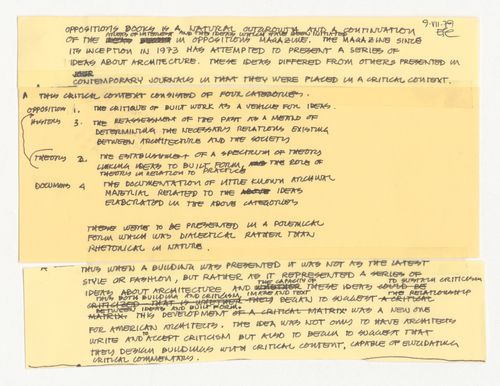 9·VII·79
OPPOSITIONS BOOKS IS A NATURAL OUTGROWTH AND A CONTINUATION
STUDIES OF INTEREST AND THE IDEAS WHICH HAVE BEEN INITIATED
OF THE IN OPPOSITIONS MAGAZINE. THE MAGAZINE SINCE
ITS INCEPTION IN 1973 HAS ATTEMPTED TO PRESENT A SERIES OF
IDEAS ABOUT ARCHITECTURE. THESE IDEAS DIFFERED FROM OTHERS PRESENTED IN
CONTEMPORARY JOURNALS IN THAT THEY WERE PLACED IN A CRITICAL CONTEXT.
A THIS CRITICAL CONTEXT CONSISTED OF FOUR CATEGORIES.
OPPOSITION 1. THE CRITIQUE OF BUILT WORK AS A VEHICLE FOR IDEAS.
HISTORY 3. THE REASSESSMENT OF THE PAST AS A MEANS OF
DETERMINING THE NECESSARY RELATIONS EXISTING
BETWEEN ARCHITECTURE AND THE SOCIETY
THEORIES 2. THE ESTABLISHMENT OF A SPECTRUM OF THEORY
LINKING IDEAS TO BUILT FORM, AND THE ROLE OF
THEORY IN RELATION TO PRACTICE
DOCUMENTS 4 THE DOCUMENTATION OF LITTLE KNOWN ARCHIVAL
MATERIAL RELATED TO THE ABOVE IDEAS
ELABORATED IN THE ABOVE CATEGORIES
THESE WERE TO BE PRESENTED IN A POLEMICAL
FORM WHICH WAS DIALECTICAL RATHER THAN
RHETORICAL IN NATURE.
THUS WHEN A BUILDING WAS PRESENTED IT WAS NOT AS THE LATEST
STYLE OR FASHION, BUT RATHER AS IT REPRESENTED A SERIES OF
THE CAPACITY OF TO SUSTAIN CRITICISM
IDEAS ABOUT ARCHITECTURE AND WHETHER THESE IDEAS COULD BE
THUS BOTH BUILDING AND CRITICISM, IMAGE AND TEXT THE RELATIONSHIP
CRITICIZED THAT IS WHETHER THEY BEGAN TO SUGGEST A CRITICAL
BETWEEN IDEAS AND BUILT FORM.
MATRIX. THIS DEVELOPMENT OF A CRITICAL MATRIX WAS A NEW ONE
FOR AMERICAN ARCHITECTS. THE IDEA WAS NOT ONLY TO HAVE ARCHITECTS
WRITE AND ACCEPT CRITICISM BUT ALSO TO BEGIN TO SUGGEST THAT
THEY DESIGN BUILDINGS WITH CRITICAL CONTENT, CAPABLE OF ELUCIDATING
CRITICAL COMMENTARY.